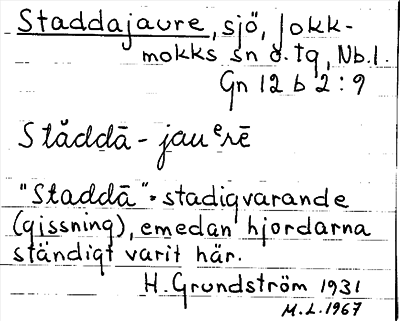 Staddajaure, sjö, Jokk-
mokks sn o. tg, Nb.l.
Gn 12 b 2:9
Stăddā-jauᵉrē
"Staddā" = stadigvarande
(gissning), emedan hjordarna
ständigt varit här.
H. Grundström 1931
M.L. 1967